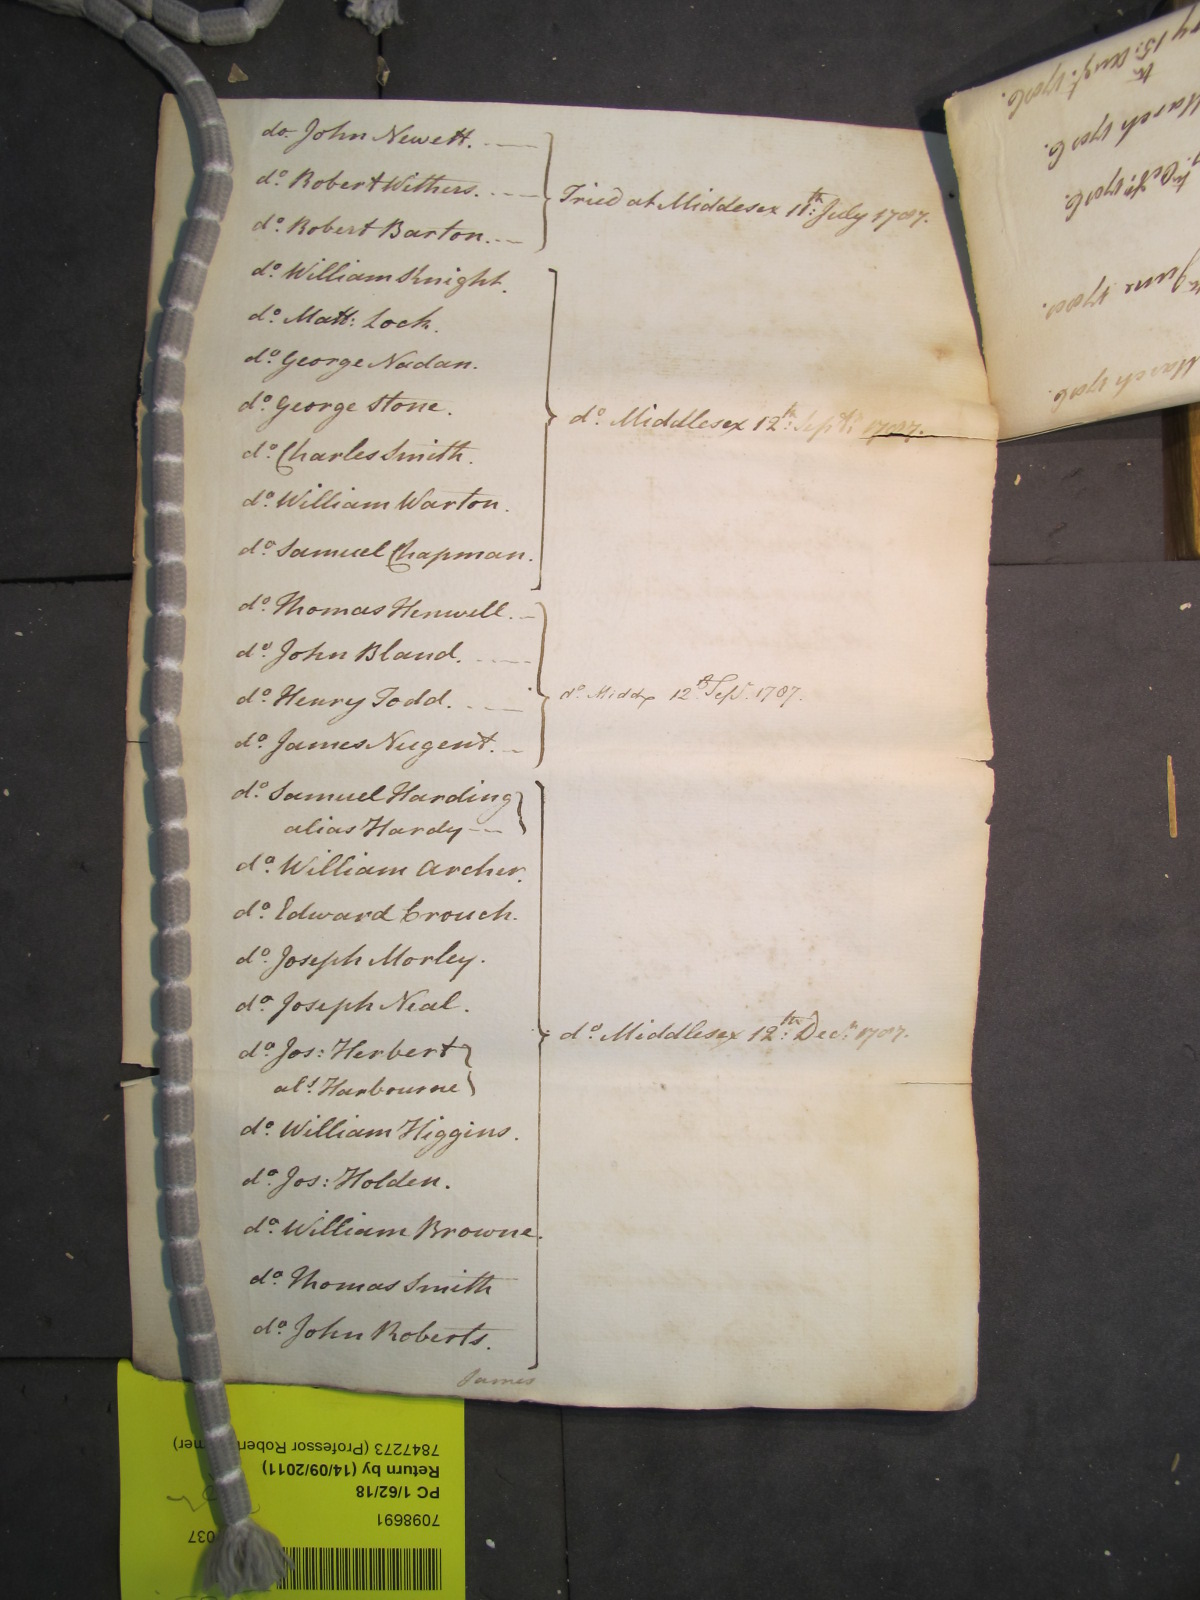 do. John Newett.
do. Robert Withers.
do. Robert Barton.
Tried at Middesex 11th: July 1787.
do. William Knight.
do. Matt: Lock.
do. George Nadan.
do. George Stone.
do. Charles Smith.
do. William Warton.
do. Samuel Chapman.
do. Middlesex 12th: Septr: 1787.
do. Thomas Henwell.
do. John Bland.
do. Henry Todd.
do. James Nugent.
do. Middx 12th Sepr. 1787.
do. Samuel Harding
alias Hardy
do. William Archer.
do. Edward Crouch.
do. Joseph Morley.
do. Joseph Neal.
do. Jos: Herbert
als. Harbourne
do. William Higgins.
do. Jos: Holden.
do. William Browne.
do. Thomas Smith
do. John Roberts.
do. Middlesex 12th: Decr. 1787.
James
15: Augt. 1786.
March 1786.
Octr. 1786.
June 1786.
March 1786.
037
7098691
PC 1/62/18
Return by (14/09/2011)
7847273 (Professor Rober mer)